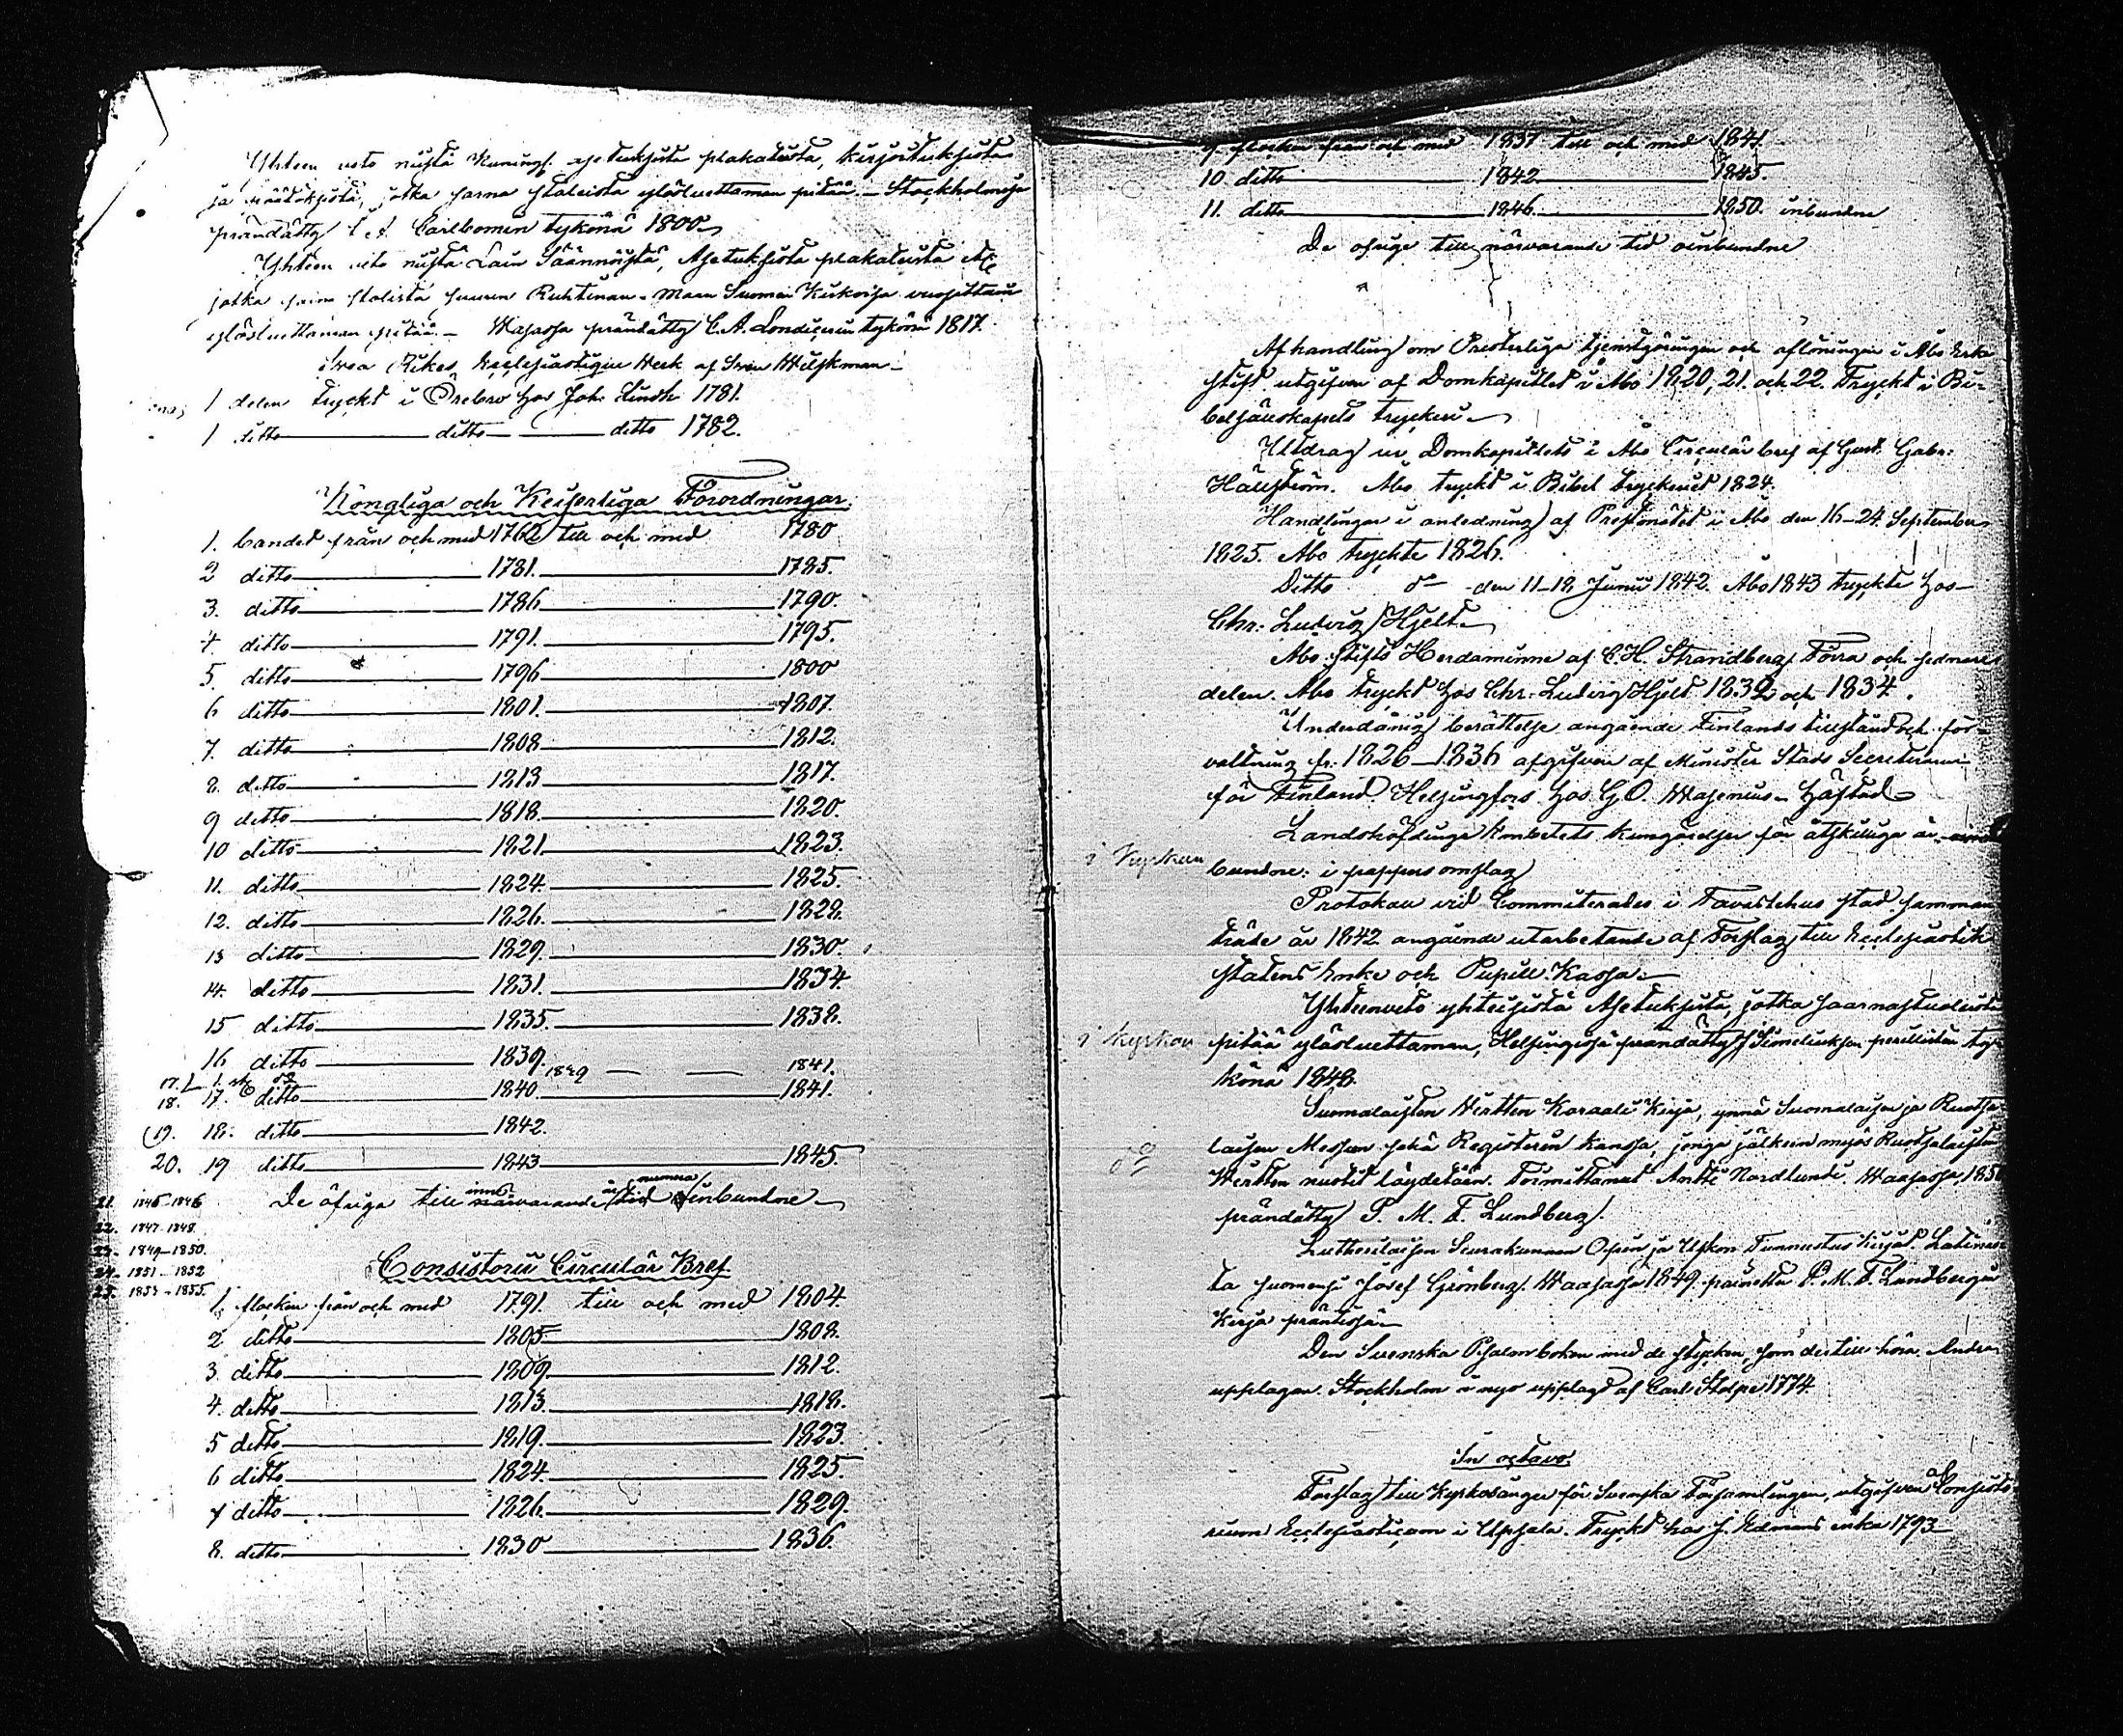 Yhteen veto niistä Kuningl. asetuksista plakateista, kirjoituksista
ja päätöksistä, jotka sarna stoleista ylösluettaman pitää. – Stockholmissa
prändätty C. A. Carlbomin tykönä 1800
Yhteen veto niistä Lain Säännöistä, Asetuksista plakateista etc
jotka sarna stolista suuren Ruhtinan-Maan Suomen Kirkoissa vuosittain
ylösluettaman pitää. – Wasassa prändätty C. A. Londicerin tykönä 1817.
Svea Rikes Ecclesiastique Werk af Sven Wilskman –
1 delen Tryckt i Örebro hos Joh. Lindh 1781.
1 ditto ditto ditto 1782.
Kongliga och Keiserliga Förordningar.
1. bandet från och med 1762 till och med 1780
2 ditto 1781. 1785.
3. ditto 1786 1790.
4 ditto 1791. 1795.
5. ditto 1796 1800
6 ditto 1801. 1807.
7. ditto 1808 1812.
8. ditto 1813 1817.
9 ditto 1818. 1820.
10 ditto 1821 1823.
11. ditto 1824. 1825.
12. ditto 1826. 1828.
13 ditto 1829. 1830.
14. ditto 1831. 1834
15 ditto 1835. 1838.
16 ditto 1839.
17. 1839 — — 1841.
18. 17. ditto 1840. 1841.
19. 18. ditto 1842.
20. 19 ditto 1843 1845.
21. 1845-1846 De öfriga till närvarande tid oinbundne
22. 1847-1848.
23. 1849-1850.
24. 1851-1852
25. 1853-1855.
Consistorii Circulär Bref
1. flocken från och med 1791. till och med 1804.
2 ditto 1805 1808.
3. ditto 1809. 1812.
4. ditto 1813. 1818.
5 ditto 1819. 1823.
6 ditto 1824. 1825.
7 ditto 1826. 1829.
8. ditto 1830 1836.
9 flocken från och med 1837 till och med 1841.
10. ditto 1842 1845.
11. ditto 1846. 1850. inbundne
De öfrige till närvarande tid oinbundne
Afhandling om Presterliga tjenstgöringen och aflöningen i Åbo Erke
stift utgifven af Domkapitlet i Åbo 1820, 21 och 22. Tryckt i Bi-
belsällskapets tryckeri
Utdrag ur Domkapitlets i Åbo Circulär bref af Gust. Gabr:
Hällström. Åbo tryckt i Bibel tryckeriet 1824.
Handlingar i anledning af Prestmötet i Åbo den 16–24 September
1825. Åbo tryckte 1826.
Ditto do den 11–18 Junii 1842. Åbo 1843 tryckte hos
Chr: Ludvig Hjelt.
Åbo Stifts Herdaminne af C. H. Strandberg, Förra och sednare
delen. Åbo tryckt hos Chr: Ludvig Hjelt 1832 och 1834.
Underdånig berättelse angående Finlands tillstånd och för-
valtning fr. 1826–1836 afgifven af Minister Stats Secreteraren
för Finland. Helsingfors hos G. O. Wasenius. häftad
Landshöfdinge Embetets kungörelser för åtskilliga år
i Kyrkan
bundne: i pappers omslag
Protokoll vid Committerades i Tavastehus stad samman
träde år 1842 angående utarbetande af Förslag till Ecclesiastik
statens Enke och Pupill Kassa.
Yhteenveto yhteisistä Asetuksista, jotka saarnastuoleista
i kyrkan
pitää ylösluettaman, Helsingissä prändätty Simeliuksen perillisten ty-
könä 1848.
Suomalaisten Virtten Koraali Kirja, ynnä Suomalaisen ja Ruotsa-
do
laisen Messun sekä Registerin kanssa, jonga jälkeen myös Ruotsalaisten
Virtten nuotit löydetään. Toimittanut Antti Nordlund. Waasassa, 185
prändätty P. M. T. Lundberg.
Lutherilaisen Seurakunnan Opin ja Uskon Tunnustus Kirjat. Latinis-
ta suomensi Josef Grönberg. Waasassa 1849. painettu P. M. T. Lundbergin
Kirja präntissä
Den Svenska Psalmboken med de stycken, som dertill höra. Andra
upplagan. Stockholm å nyo upplagd af Carl Stolpe 1774
In octavo.
Förslag till Kyrkosånger för Svenska Församlingen, utgifven af Consisto-
rium Ecclesiasticum i Upsala. Tryckt hos J. Edmans enka 1793